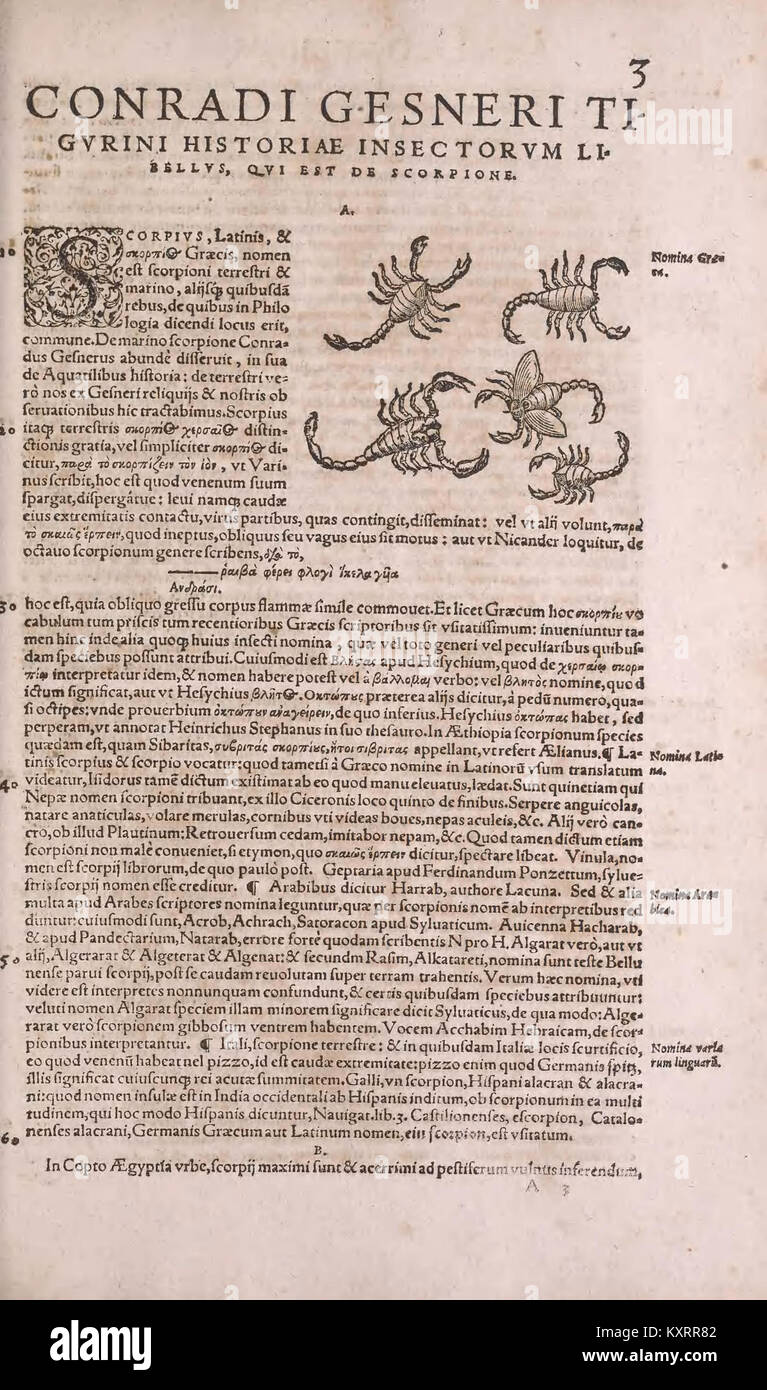 3
CONRADI GESNERI TI-
GVRINI HISTORIAE INSECTORVM LI-
BELLVS, QVI EST DE SCORPIONE.
A.
SCORPIVS, Latinis, &
σκορπίος Græcis, nomen
est scorpioni terrestri &
marino, alijsq; quibusdā
rebus, de quibus in Philo
logia dicendi locus erit,
commune. De marino scorpione Conra-
dus Gesnerus abundè disseruit, in sua
de Aquatilibus historia: de terrestri ve-
rò nos ex Gesneri reliquijs & nostris ob
seruationibus hic tractabimus. Scorpius
itaq; terrestris σκορπίος χερσαῖος distin-
ctionis gratia, vel simpliciter σκορπίος di-
citur, παρὰ τὸ σκορπίζειν τὸν ἰὸν, vt Vari-
nus scribit, hoc est quod venenum suum
spargat, dispergátue: leui namq; caudæ
eius extremitatis contactu, virus partibus, quas contingit, disseminat: vel vt alij volunt, παρὰ
τὸ σκαιῶς ἕρπειν, quod ineptus, obliquus seu vagus eius sit motus: aut vt Nicander loquitur, de
octauo scorpionum genere scribens, διὰ τὸ,
ῥαιβὰ φέρει φλογὶ ἴκελα γῦια
Ἀνδράσι.
hoc est, quia obliquo gressu corpus flammæ simile commouet. Et licet Græcum hoc σκορπίου vo
cabulum tum priscis tum recentioribus Græcis scriptoribus sit vsitatissimum: inueniuntur ta-
men hinc inde alia quoq; huius insecti nomina, quæ vel toto generi vel peculiaribus quibus-
dam speciebus possunt attribui. Cuiusmodi est βλῆτας apud Hesychium, quod de χερσαίῳ σκορ-
πίῳ interpretatur idem, & nomen habere potest vel à βάλλομαι verbo: vel βλητὸς nomine, quod
ictum significat, aut vt Hesychius βλῆτος. Οκτώπους præterea alijs dicitur, à pedū numero, qua-
si octipes: vnde prouerbium ὀκτώπουν ἀναγείρειν, de quo inferius. Hesychius ὀκτώπας habet, sed
perperam, vt annotat Heinrichus Stephanus in suo thesauro. In Æthiopia scorpionum species
quædam est, quam Sibaritas, συβριτάς σκορπίους, ἤτοι σιβρίτας appellant, vt refert Ælianus. ¶ La-
tinis scorpius & scorpio vocatur: quod tametsi à Græco nomine in Latinorū vsum translatum
videatur, Isidorus tamē dictum existimat ab eo quod manu eleuatus, lædat. Sunt quinetiam qui
Nepæ nomen scorpioni tribuant, ex illo Ciceronis loco quinto de finibus. Serpere anguiculas,
natare anaticulas, volare merulas, cornibus vti videas boues, nepas aculeis, &c. Alij verò can-
cro, ob illud Plautinum: Retrouersum cedam, imitabor nepam, &c. Quod tamen dictum etiam
scorpioni non malè conueniet, si etymon, quo σκαιῶς ἕρπειν dicitur, spectare libeat. Vinula, no-
men est scorpij librorum, de quo paulò post. Geptaria apud Ferdinandum Ponzettum, sylue-
stris scorpij nomen esse creditur. ¶ Arabibus dicitur Harrab, authore Lacuna. Sed & alia
multa apud Arabes scriptores nomina leguntur, quæ per scorpionis nomē ab interpretibus red
duntur: cuiusmodi sunt, Acrob, Achrach, Satoracon apud Syluaticum. Auicenna Hacharab,
& apud Pandectarium, Natarab, errore fortè quodam scribentis N pro H. Algarat verò, aut vt
alij, Algerarat & Algeterat & Algenat: & secundm Rasim, Alkatareti, nomina sunt teste Bellu
nense parui scorpij, post se caudam reuolutam super terram trahentis. Verum hæc nomina, vti
videre est interpretes nonnunquam confundunt, & certis quibusdam speciebus attribuuntur:
veluti nomen Algarat speciem illam minorem significare dicit Syluaticus, de qua modo: Alge-
rarat verò scorpionem gibbosum ventrem habentem. Vocem Acchabim Hebraicam, de scor-
pionibus interpretantur. ¶ Itali, scorpione terrestre: & in quibusdam Italiæ locis scurtificio,
eo quod venenū habeat nel pizzo, id est caudæ extremitate: pizzo enim quod Germanis spitz,
illis significat cuiuscunq; rei acutæ summitatem. Galli, vn scorpion, Hispani alacran & alacra-
ni: quod nomen insulæ est in India occidentali ab Hispanis inditum, ob scorpionum in ea multi
tudinem, qui hoc modo Hispanis dicuntur, Nauigat. lib. 3. Castilionenses, escorpion, Catalo-
nenses alacrani, Germanis Græcum aut Latinum nomen, ein scorpion, est vsitatum.
B.
In Copto Ægyptia vrbe, scorpij maximi sunt & acerrimi ad pestiferum vulnus inferendum,
A 3
Nomina Græ-
ca.
Nomina Lati-
na.
Nomina Ara-
bica.
Nomina varia
rum linguarū.
10
20
30
40
50
60
alamy
Image ID: KXRR82
www.alamy.com